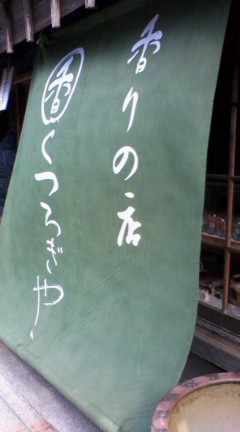 香りの店
香くつろぎや